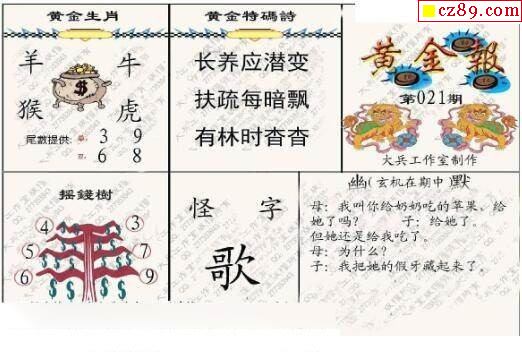 cz89.com
黄金生肖
羊 牛
猴 虎
尾數提供:单、3 9
双、6 8
黄金特碼詩
长养应潜变
扶疏每暗飘
有林时杳杳
黄金報
第021期
大兵工作室制作
摇錢樹
④ ⑦
③ ①
⑥ ⑨
怪 字
歌
幽(玄机在期中 默
母：我叫你给奶奶吃的苹果、给
她了吗？ 子：给她了。
但她还是给我吃了。
母：为什么？
子：我把她的假牙藏起来了。